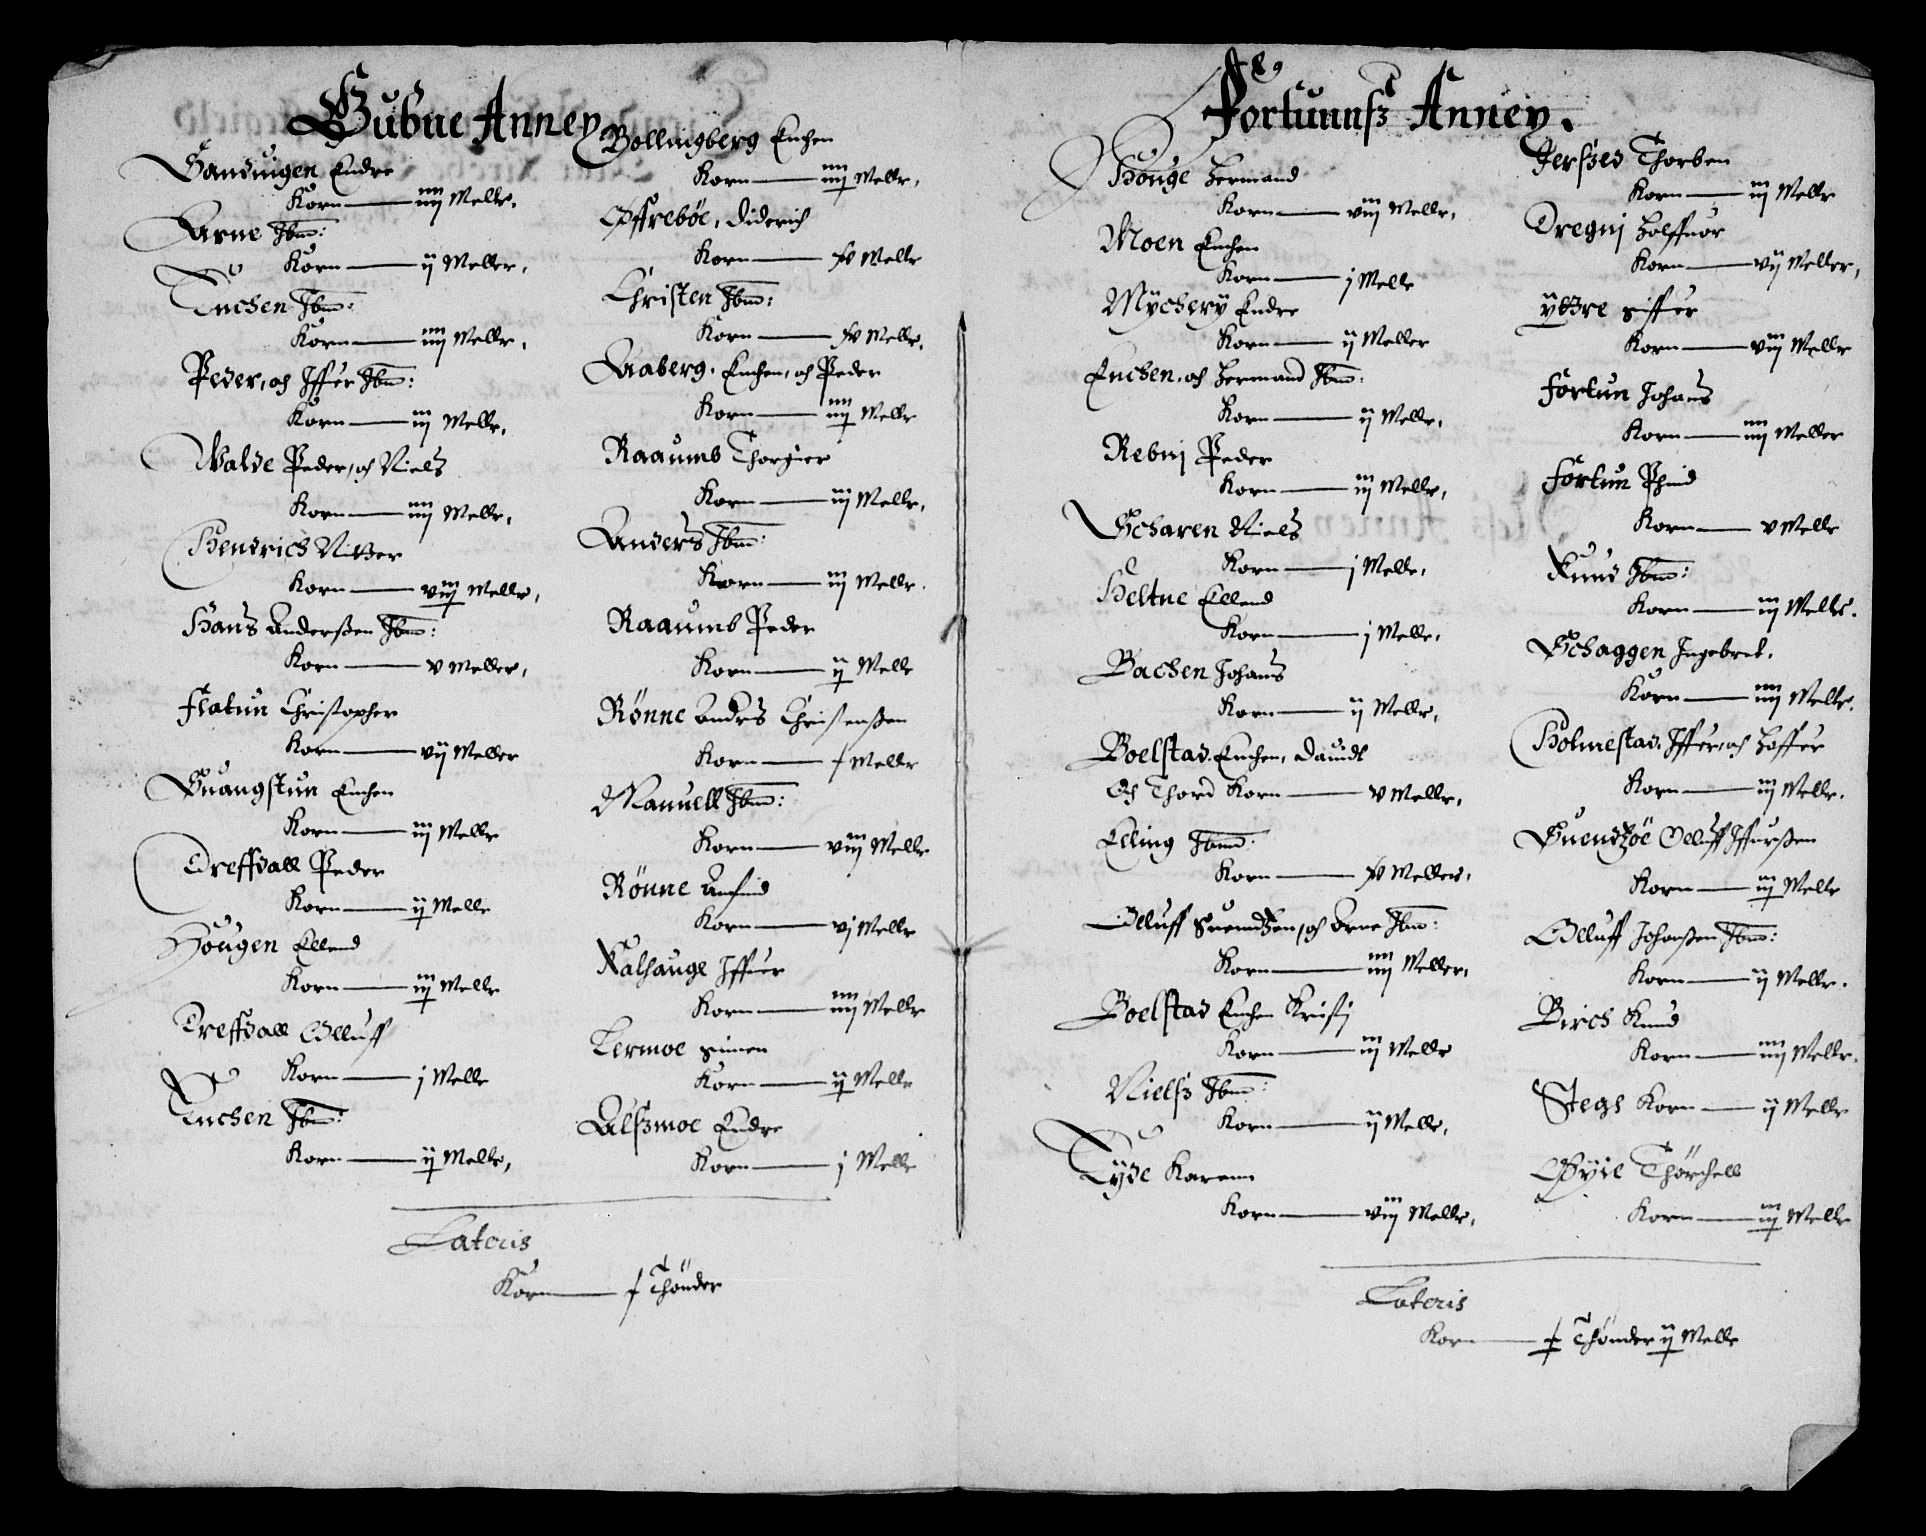 Gubne Anney
Sandvigen Endre
Korn — iiij Melle,
Arne Ibm:
Korn — ij Meller,
Enchen Ibm:
Korn — iiij Melle,
Peder, och Iffuer Ibm:
Korn — iij Melle,
Walde Peder, och Niels
Korn — iiij Melle,
Hendrich Ritzer
Korn — viij Melle,
Hans Anderssen Ibm:
Korn — v Meller,
Flatun Christopher
Korn — vij Meller
Enchen
Korn — iij Melle
Dreffdall Peder
Korn — ij Melle
Hougen Ellend
Korn — iij Melle
Dreffdall Olluff
Korn — j Melle
Enchen Ibm:
Korn — ij Melle,
Bollingberg Enchen
Korn — iiij Melle,
Offrebøe, Diderich
Korn — Melle
Christen Ibm:
Korn — Melle,
Aaberg, Enchen, och Peder
Korn — iiij Melle
Raaumb Thorgier
Korn — iij Melle,
Anders Ibm:
Korn — iij Melle.
Raaumb Peder
Korn — ij Melle
Rønne Andrs Christenssen
Korn — Melle
Manuell Ibm:
Korn — viij Melle
Rønne Amfind
Korn — vj Melle
Kalhauge Iffuer
Korn — iiij Melle
Lermoe Simen
Korn — ij Melle
Alssmoe Endre
Korn — j Melle
Lateris
Korn — Thønder
Fortunnss Anney.
Houge Hermand
Korn — viij Melle,
Moen Enchen
Korn — j Melle
Endre
Korn — ij Meller
Enchen, och Hermand Ibm:
Korn — ij Melle,
Rebnj Peder
Korn — iij Melle,
Scharen Niels
Korn — j Melle,
Heltne Ellend
Korn — j Melle,
Bachen Johans
Korn — ij Melle,
Boelstad Enchen, Dauidt
Och Thord Korn — v Melle,
Elling Ibm:
Korn — Meller,
Olluff Suendtzen, och Arne Ibm:
Korn — iiij Meller,
Boelstad Enchen Kristj
Korn — iij Melle
Nielss Ibm:
Korn — ij Melle,
Eyde Karenn
Korn — viij Melle,
Jerssed Thorben
Korn — iij Melle
Dregnj Halffuor
Korn — vij Meller,
ÿttre Siffuer
Korn — viij Melle
Fortun Johans
Korn — iiij Meller
Fortun
Korn — v Melle
Knud Ibm:
Korn — iij Melle.
Schaggen Ingebret.
Korn — iiij Melle.
Holmestad, Iffuer, och Haffuer
Korn — iij Melle.
Suendtzøe Olluff Iffuerssen
Korn — iij Melle
Olluff Johanssen Ibm:
Korn — ij Melle.
Birch Knud
Korn — iiij Melle.
Stegh Korn — ij Melle
Øÿie Thorchell
Korn — iij Melle
Lateris
Korn — Thønder ij Melle